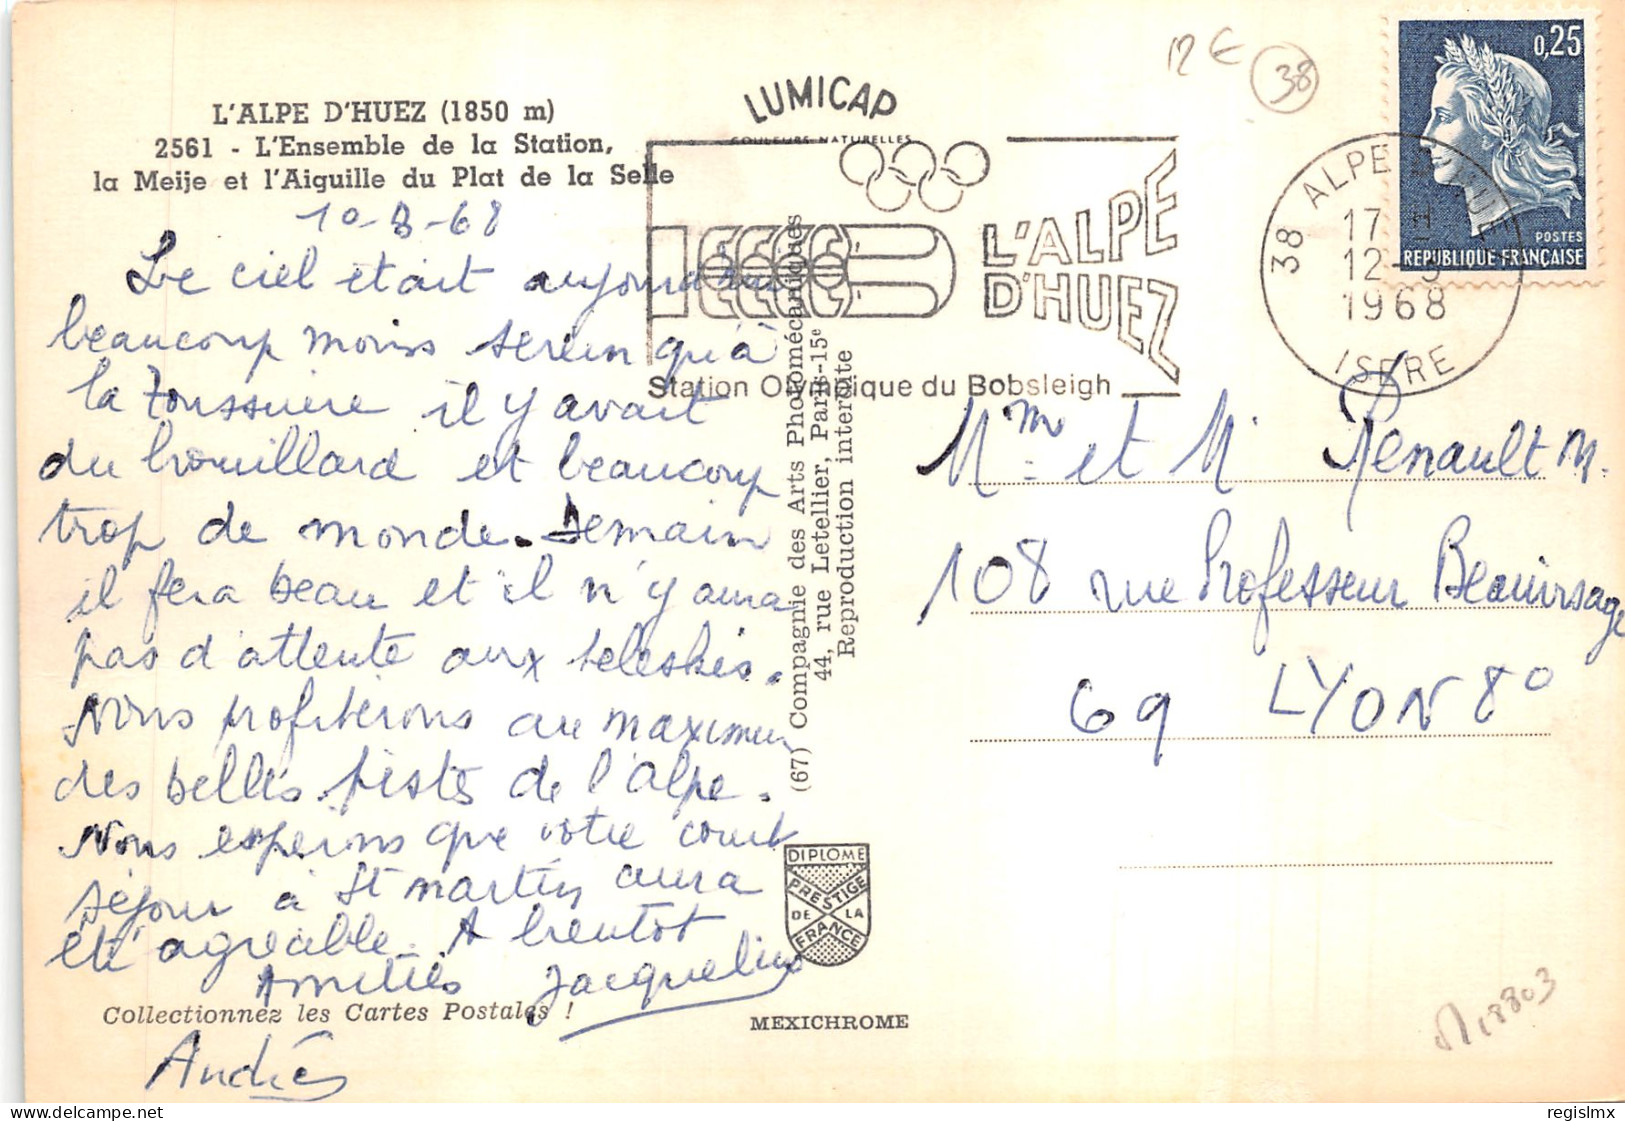 L'ALPE D'HUEZ (1850 m)
2561 - L'Ensemble de la Station,
la Meije et l'Aiguille du Plat de la Selle
10-3-68
Le ciel était aujourd'hui
beaucoup moins serein qu'à
la Toussuire il y avait
du brouillard et beaucoup
trop de monde. Demain
il fera beau et il n'y aura
pas d'attente aux téléskis.
Nous profiterons au maximum
des belles pistes de l'alpe.
Nous espérons que votre court
séjour à St martin aura
été agréable. A bientot
Amitiés Jacqueline
Collectionnez les Cartes Postales !
André
LUMICAP
COULEURS NATURELLES
L'ALPE
D'HUEZ
Station Olympique du Bobsleigh
(67) Compagnie des Arts Photomécaniques
44, rue Letellier, Paris-15e
Reproduction interdite
DIPLOME
PRESTIGE
DE LA
FRANCE
MEXICHROME
12 €
38
0,25
POSTES
REPUBLIQUE FRANÇAISE
38 ALPE D'HUEZ
17 H
12-3
1968
ISERE
Mme et M. Renault M.
108 rue Professeur Beauvisage
69 LYON 8°
18803
regislmx